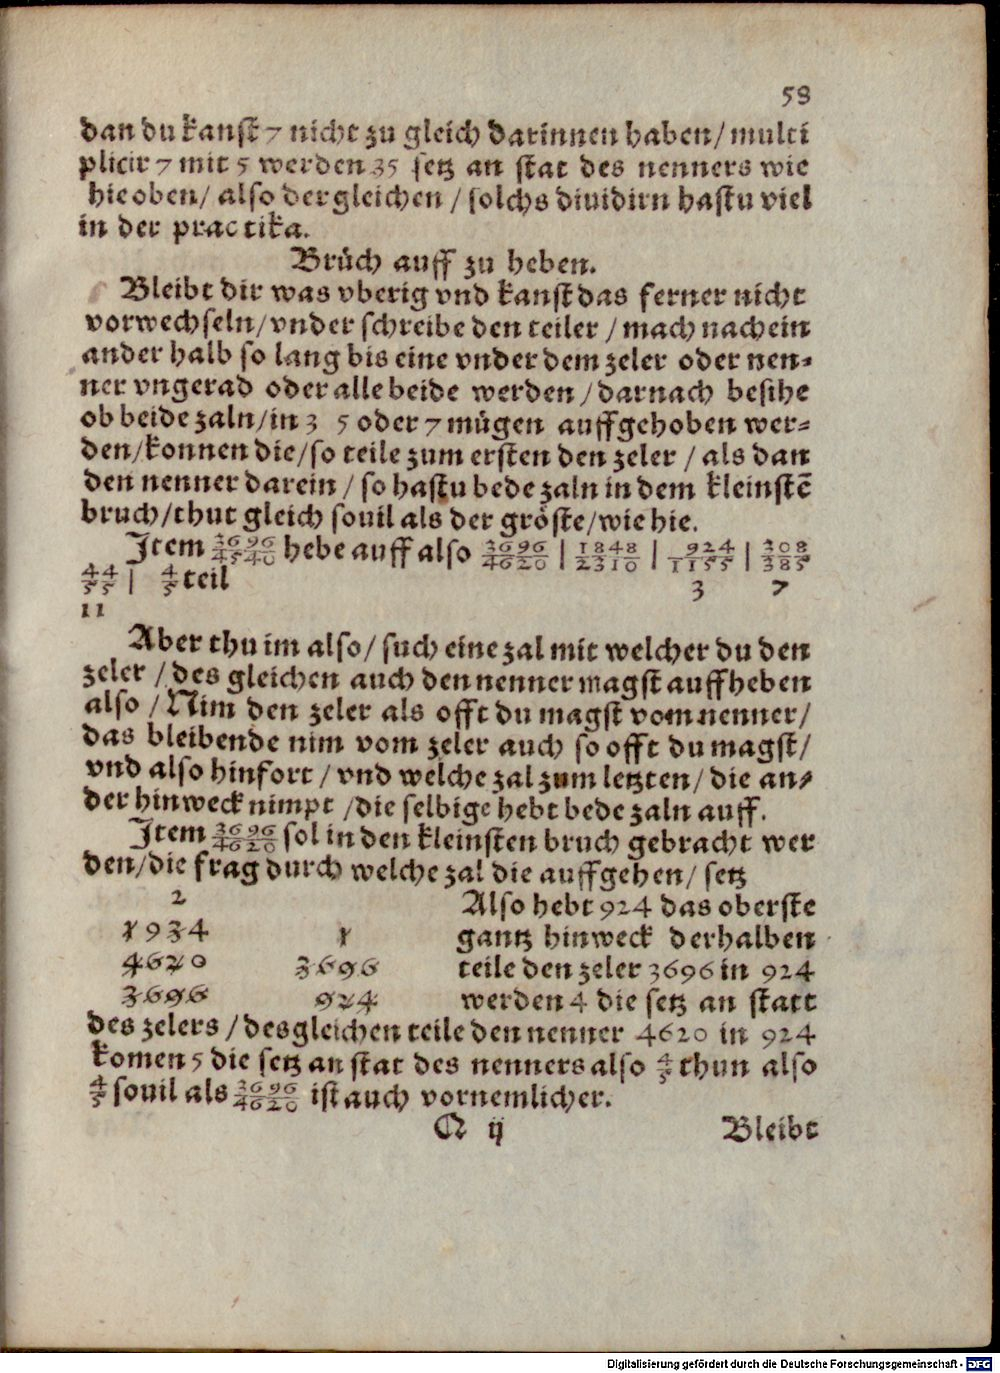 58
dan du kanst 7 nicht zu gleich darinnen haben/ multi
plicir 7 mit 5 werden 35 setz an stat des nenners wie
hie oben/ also der gleichen / solchs diuidirn hastu viel
in der practika.
Brůch auff zu heben.
Bleibt dir was vberig vnd kanst das ferner nicht
vorwechseln/ vnder schreibe den teiler / mach nach ein
ander halb so lang bis eine vnder dem zeler oder nen⸗
ner vngerad oder alle beide werden / darnach besihe
ob beide zaln/in 3 5 oder 7 můgen auffgehoben wer⸗
den/konnen die/so teile zum ersten den zeler / als dan
den nenner darein / so hastu bede zaln in dem kleinstē
bruch/thut gleich souil als der gröste/wie hie.
Item 3696/4540 hebe auff also 3696/4620 | 1848/2310 | 924/1155 | 308/385
44/55 | 4/5 teil 3 7
11
Aber thu im also/ such eine zal mit welcher du den
zeler / des gleichen auch den nenner magst auffheben
also / Nim den zeler als offt du magst vom nenner/
das bleibende nim vom zeler auch so offt du magst/
vnd also hinfort / vnd welche zal zum letzten/ die an⸗
der hinweck nimpt /die selbige hebt bede zaln auff.
Item 3696/4620 sol in den kleinsten bruch gebracht wer
den/die frag durch welche zal die auffgehen/ setz
2 Also hebt 924 das oberste
1934 1 gantz hinweck derhalben
4620 3696 teile den zeler 3696 in 924
3696 924 werden 4 die setz an statt
des zelers / desgleichen teile den nenner 4620 in 924
komen 5 die setz an stat des nenners also 4/5 thun also
4/5 souil als 3696/4620 ist auch vornemlicher.
Q ij Bleibt
Digitalisierung gefördert durch die Deutsche Forschungsgemeinschaft - DFG